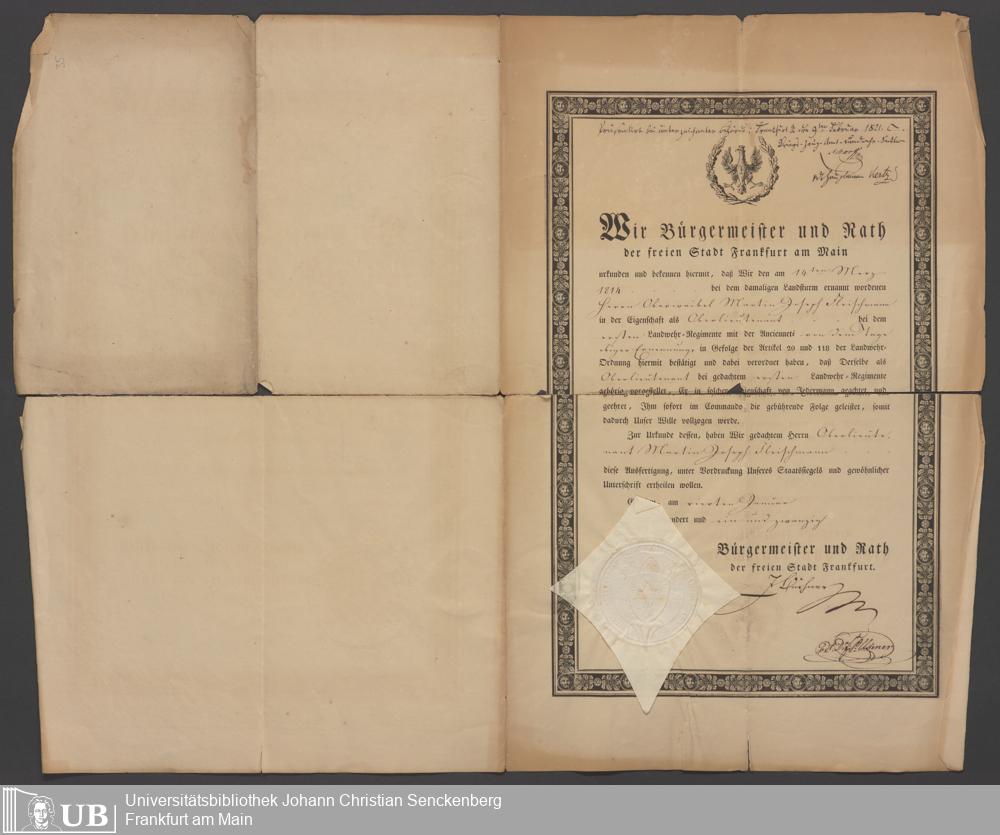 Frankfurt den 9ten Februar 1821.
Hertz
Wir Bürgermeister und Rath
der freien Stadt Frankfurt am Main
urkunden und bekennen hiermit, daß Wir den am 14ten Merz
1814 bei dem damaligen Landsturm ernannt wordenen
Herrn Oberweibel Martin Joseph Fleischmann
in der Eigenschaft als Oberlieutenant bei dem
ersten Landwehr-Regimente mit der Ancienneté von dem Tage
obiger Ernennung, in Gefolge der Artikel 20 und 118 der Landwehr-
Ordnung hiermit bestätigt und dabei verordnet haben, daß Derselbe als
Oberlieutenant bei gedachtem ersten Landwehr-Regimente
gehörig vorgestellet, Er in solcher Eigenschaft von Jedermann geachtet und
geehret, Ihm sofort im Commando die gebührende Folge geleistet, somit
dadurch Unser Wille vollzogen werde.
Zur Urkunde dessen, haben Wir gedachtem Herrn Oberlieute-
nant Martin Joseph Fleischmann
diese Ausfertigung, unter Vordruckung Unseres Staatssiegels und gewöhnlicher
Unterschrift ertheilen wollen.
am vierten Januar
ndert und ein und zwanzig
Bürgermeister und Rath
der freien Stadt Frankfurt.
UB
Universitätsbibliothek Johann Christian Senckenberg
Frankfurt am Main